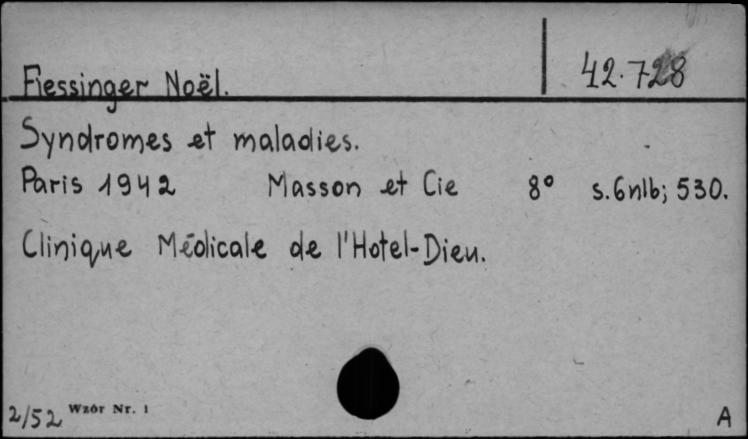 Fiessinger Noël. 42.728
Syndromes et maladies.
Paris 1942 Masson et Cie 8° s.6nlb; 530.
Clinique Médicale de l'Hotel-Dieu.
2/52 Wzór Nr. 1 A